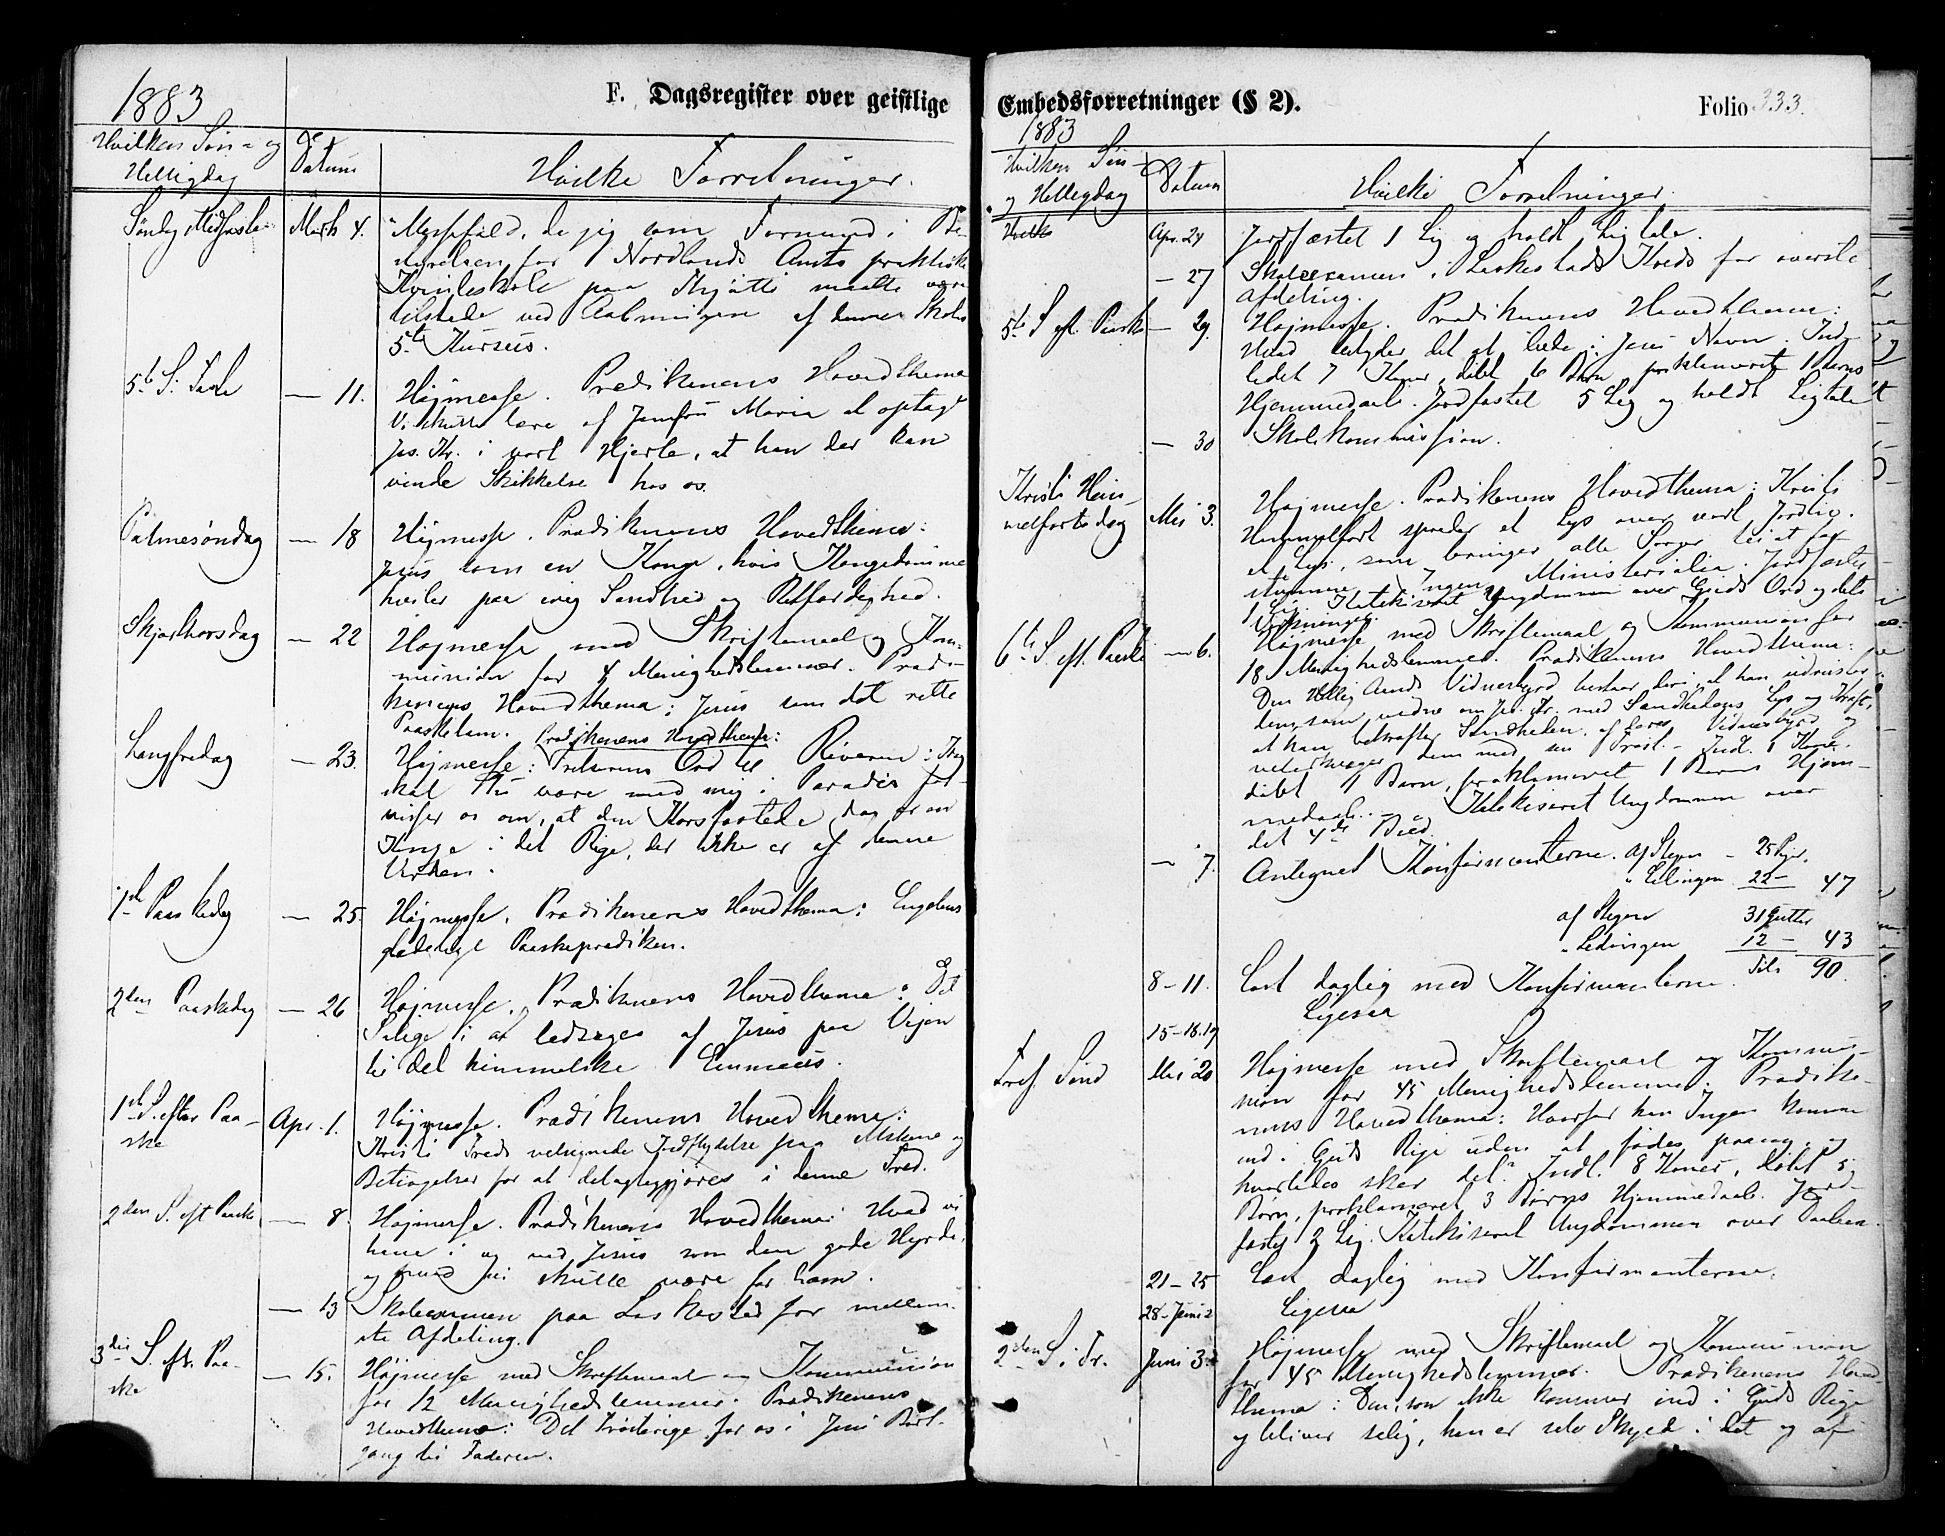 1883
F. Dagsregister over geistlige
Hvilken Søn- og
Helligdag
Datum
Hvilke Forretninger.
Søndag Midfaste
Marh 4.
Messefald, da jeg som Formand i Be-
styrelsen for Nordlands Amts praktiske
Kvindeskole paa Kjøtti maatte være
tilstede ved Aabningen af denne Skoles
5te Kursus.
5te S. i Faste
— 11.
Højmesse. Prædikenens Hovedthema
Vi skulle lære af Jomfru Maria at optage
Jes. Kr. i vort Hjerte, at han der kan
vinde Skikkelse hos os.
Palmesøndag
— 18
Højmesse. Prædikenens Hovedthema:
Jesus som en Konge, hvis Kongedømme
hviler paa evig Sandhed og Retfærdighed.
Skjærthorsdag
— 22
Højmesse med Skriftemaal og Kom-
munion for 4 Menighedslemmer. Prædi-
kenens Hovedthema: Jesus som det rette
Paaskelam.
Prædikenens Hovedthema:
Langfredag
— 23.
Højmesse: Frelserens Ord til Røveren: Idag
skal Du være med mig i Paradis for-
visser os om, at den Korsfæstede dog er en
Konge i det Rige, der ikke er af denne
Verden.
1ste Paaskedag
— 25.
Højmesse. Prædikenens Hovedthema: Engelens
glædelige Paaskeprædiken.
2den Paaskedag
— 26
Højmesse. Prædikenens Hovedthema: Det
Salige i at ledsages af Jesus paa Vejen
til det himmelske Emmaus.
1ste S. efter Paa-
ske
Apr. 1.
Højmesse. Prædikenens Hovedthema:
Kristi Freds velsignede Indflydelse paa Mskene og
Betingelser for at delagtiggjøres i denne Fred.
2den S. eft Paaske
— 8.
Højmesse. Prædikenens Hovedthema: Hvad vi
have i og ved Jesus som den gode Hyrde,
og hvad vi skulle være for ham.
— 13
Skoleexamen paa Laskestad for mellem-
ste Afdeling.
3die S. eft. Paa-
ske
— 15.
Højmesse med Skriftemaal og Kommunion
for 12 Menighedslemmer. Prædikenens
Hovedthema: Det trøsterige for os i Jesu Bort-
gang til Faderen.
Embedsforretninger (§ 2).
Folio 333.
1883
Hvilken Søn-
og Helligdag
Datum
Hvilke Forretninger.
Apr. 24
Jordfæstet 1 Lig og holdt Ligtale.
— 27
Skoleexamen i Laskestads Kreds for øverste
Afdeling.
5te S. eft. Paaske
— 29.
Højmesse. Prædikenens Hovedthema:
Hvad betyder det at bede i Jesu Navn. Ind-
ledet 7 Koner, døbt 6 Børn, proklameret 1 Børns
Hjemmedaab. Jordfæstet 5 Lig og holdt Ligtale
— 30
Skolekommission.
Kristi Him-
melfartsdag
Mai 3.
Højmesse. Prædikenens Hovedthema: Kristi
Himmelfart spreder et Lys over vort Jordliv.
et Lys, som bringer alle Sorger til at for-
stumme. Ingen Ministerialia. Jordfæstet
1 Lig. Katekiseret Ungdommen over Guds Ord og dets
Virkninger.
6te S. eft. Paaske
— 6.
Højmesse med Skriftemaal og Kommunion for
18 Menighedslemmer. Prædikenens Hovedthema:
Den Hellig Aands Vidnesbyrd bestaar deri, at han udruster
dem, som vidne om Jes. Kr. med Sandhedens Lys og Kraft,
at han bekræfter Sandheden af deres Vidnesbyrd og
vederkvæger dem med sin Trøst. — Indl. 1 Kone.
døbt 1 Barn, proklameret 1 Barns Hjem-
medaab. — Katekiseret Ungdommen over
det 4de Bud.
— 7.
Antegnet Konfirmanterne. af Stegen – 25 Piger.
„ Ledingen 22 — 47
af Stegen 31 Gutter
„ Ledingen 12 — 43
Tils. 90.
8–11.
Læst daglig med Konfirmanterne.
15–16.19
Ligesaa
Tref. Sønd
Mai 20
Højmesse med Skriftemaal og Kommu-
nion for 45 Menighedslemmer. Prædike-
nens Hovedthema: Hvorfor kan Ingen komme
ind i Guds Rige uden at fødes paany, og
hvorledes sker det? Indl. 8 Koner, døbt 5
Børn, proklameret 3 Børns Hjemmedaab. Jord-
fæstet 2 Lig. Katekiseret Ungdommen over Daaben.
21–25
Læst daglig med Konfirmanterne.
28–Juni 2
Ligesaa
2den S. i Tr.
Juni 3.
Højmesse med Skriftemaal og Kommunion
for 45 Menighedslemmer. Prædikenens Hoved-
thema: Den, som ikke kommer ind i Guds Rige
og bliver salig, han er selv Skyld i det og af